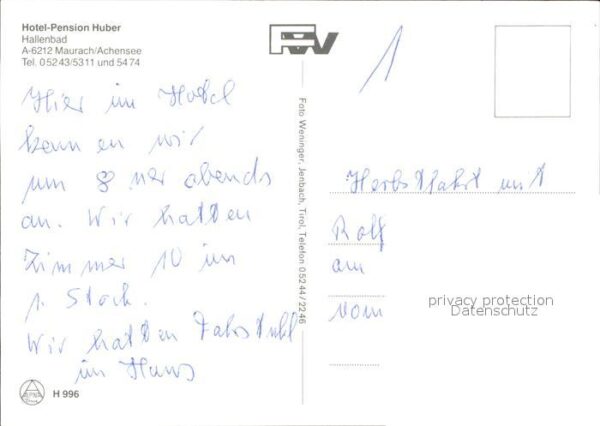 Hotel-Pension Huber
Hallenbad
A-6212 Maurach/Achensee
Tel. 05243/5311 und 5474
Hier im Hotel
kamen wir
um 8 Uer abends
an. Wir hatten
Zimmer 10 im
1. Stock.
Wir hatten Fahrstuhl
im Haus
H 996
Foto Weninger, Jenbach, Tirol, Telefon 05244/2246
1
Herbstfahrt mit
Rolf
am
vom
privacy protection
Datenschutz